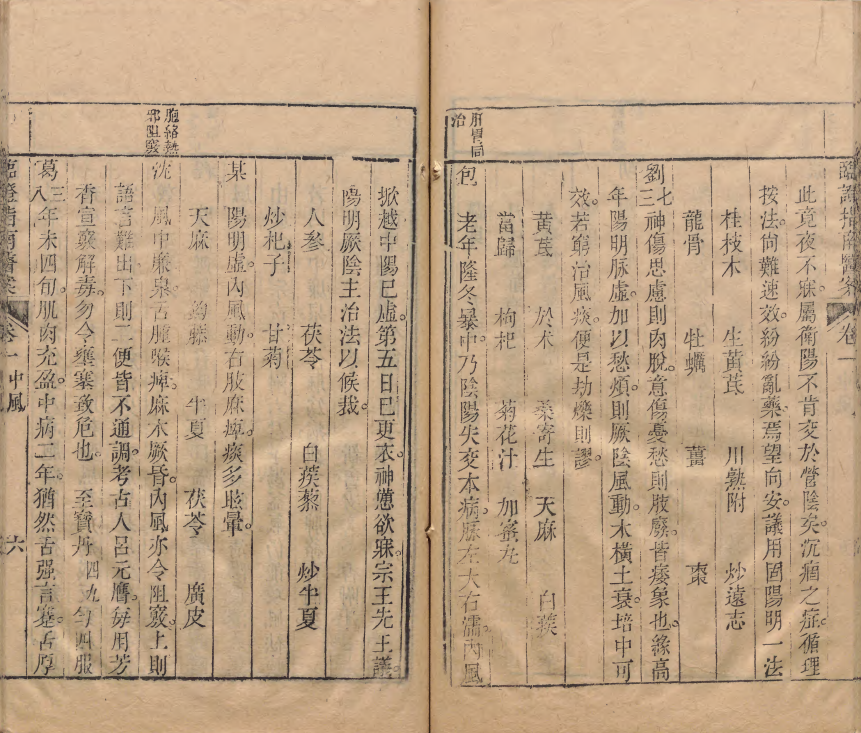 臨證指南醫案 卷一
此竟夜不寐屬衛陽不肯交於營陰矣沉痼之症循理
按法尚難速效紛紛亂藥焉望向安議用固陽明一法
桂枝木 生黃芪 川熟附 炒遠志
龍骨 牡蠣 薑 棗
劉七三 神傷思慮則肉脫意傷憂愁則肢廢皆痿象也緣高
年陽明脉虛加以愁煩則厥陰風動木橫土衰培中可
效若窮治風痰便是劫爍則謬
黃芪 於朮 桑寄生 天麻 白蒺
當歸 枸杞 菊花汁 加蜜丸
肝腎同治
包 老年隆冬暴中乃陰陽失交本病脈左大右濡內風
掀越中陽已虛第五日已更衣神憊欲寐宗王先生議
陽明厥陰主治法以候裁
人參 茯苓 白蒺藜 炒半夏
炒杞子 甘菊
某 陽明虛內風動右肢麻痺痰多眩暈
天麻 鉤藤 半夏 茯苓 廣皮
胞絡熱邪阻竅
沈 風中廉泉舌腫喉痺麻木厥昏內風亦令阻竅上則
語言難出下則二便皆不通調考古人呂元膺每用芳
香宣竅解毒勿令壅塞致危也 至寶丹 四丸勻四服
葛三八 年未四旬肌肉充盈中病二年猶然舌强言蹇舌厚
臨證指南醫案 卷一 中風 六